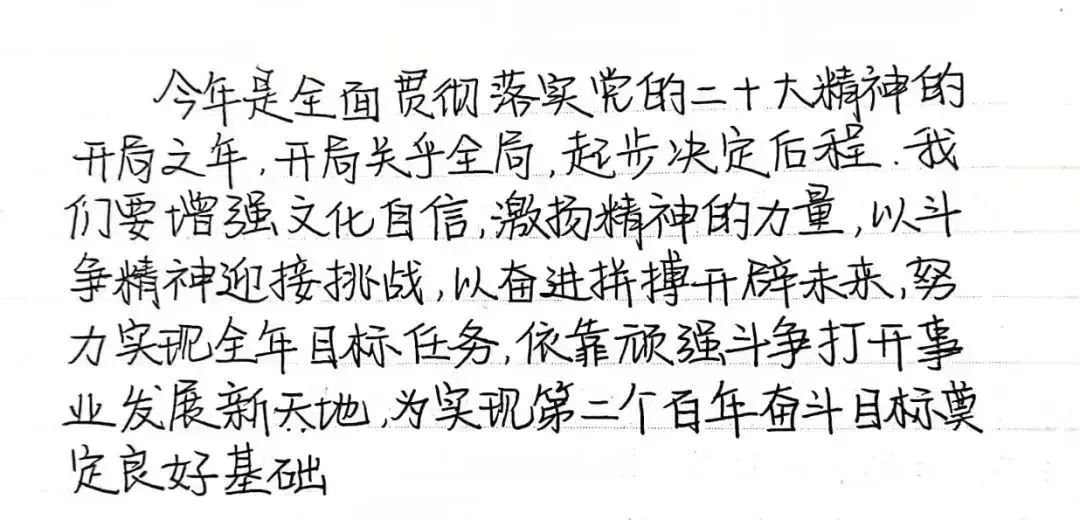 今年是全面贯彻落实党的二十大精神的
开局之年,开局关乎全局,起步决定后程.我
们要增强文化自信,激扬精神的力量,以斗
争精神迎接挑战,以奋进拼搏开辟未来,努
力实现全年目标任务,依靠顽强斗争打开事
业发展新天地,为实现第二个百年奋斗目标奠
定良好基础